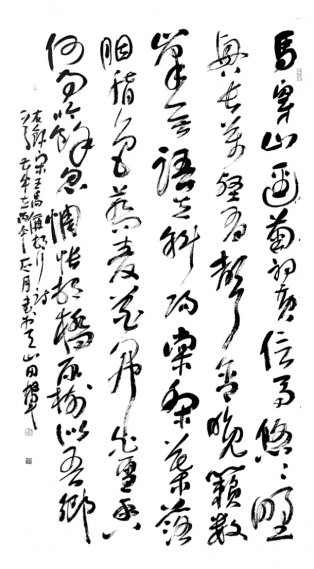 馬穿山徑菊初黃信馬悠〻野
興長萬壑有聲含晚籟數
峯無語立斜陽棠梨葉落
胭脂色蕎麥花開白雪香
何事吟餘忽惆悵村橋原樹似吾鄉
右錄宋王禹偁村行詩